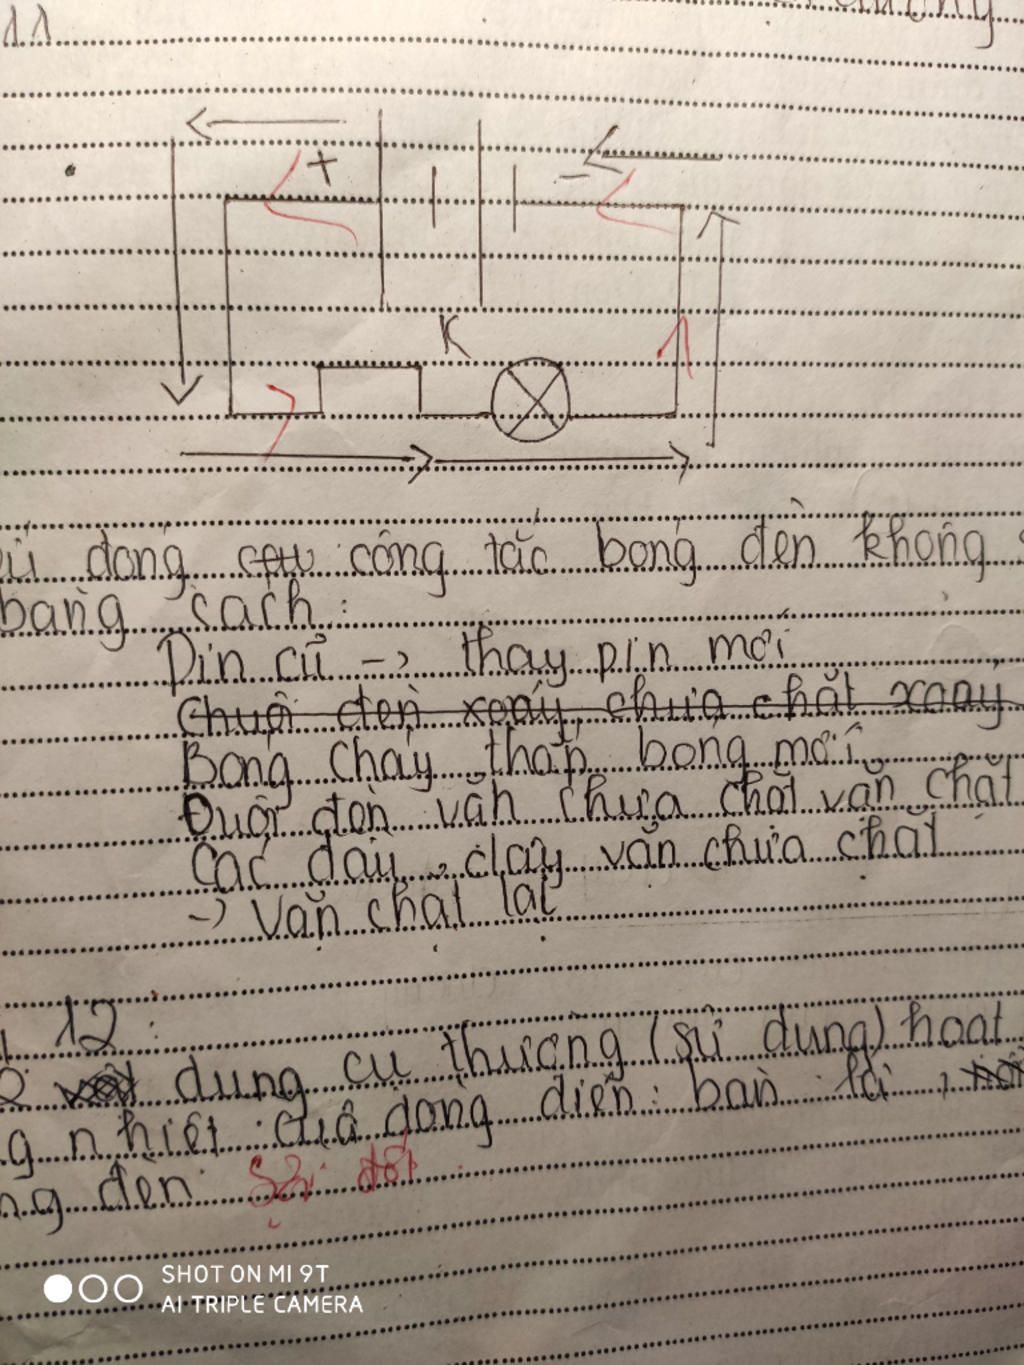 11
+ -
K
đóng công tắc bóng đèn không
bằng cách:
Pin cũ -> thay pin mới
Chuôi đèn xoáy chưa chắt xoay
Bóng cháy thay bóng mới
Đuôi đèn văn chưa chắt văn chắt
Các dây dây văn chưa chắt
-> Văn chắt lại
12:
dụng cụ thường (sử dụng) hoạt
nhiệt của dòng điện: bàn là,
ng đèn Sợi đốt
SHOT ON MI 9T
AI TRIPLE CAMERA